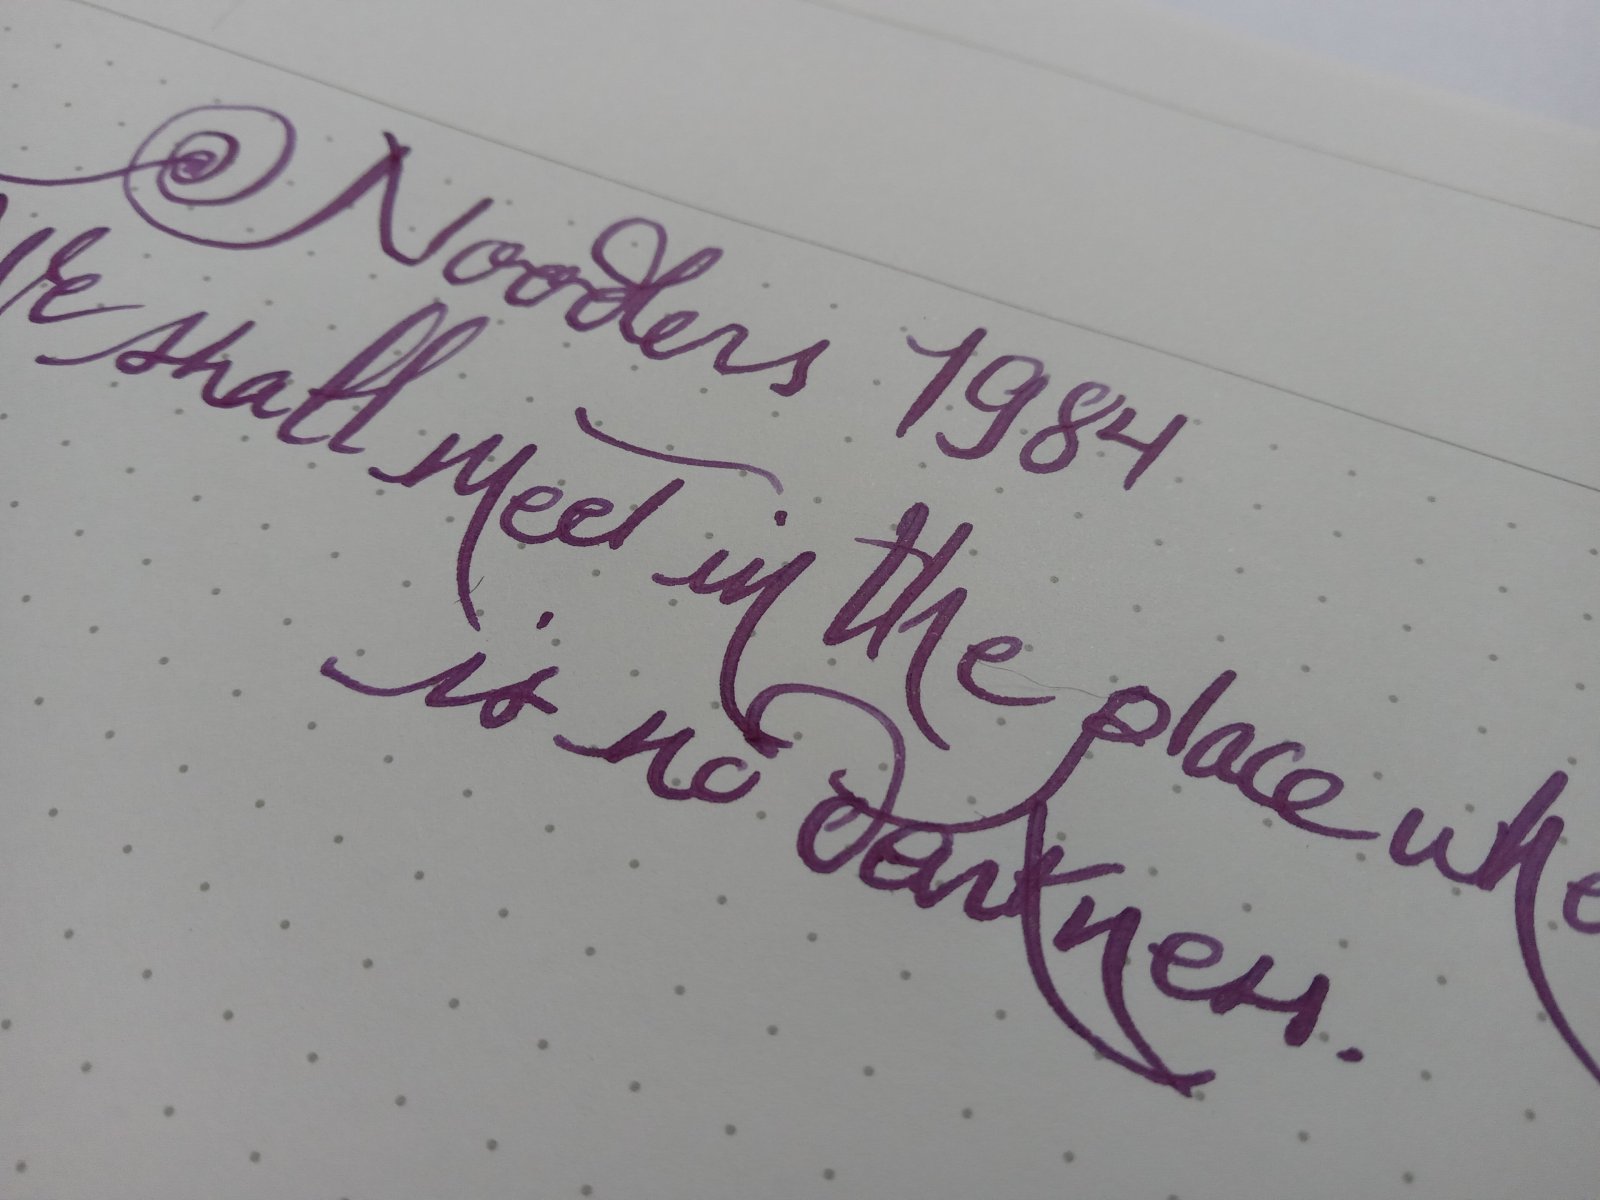 Nooders 1984
We shall meet in the place whe
is no darkness.